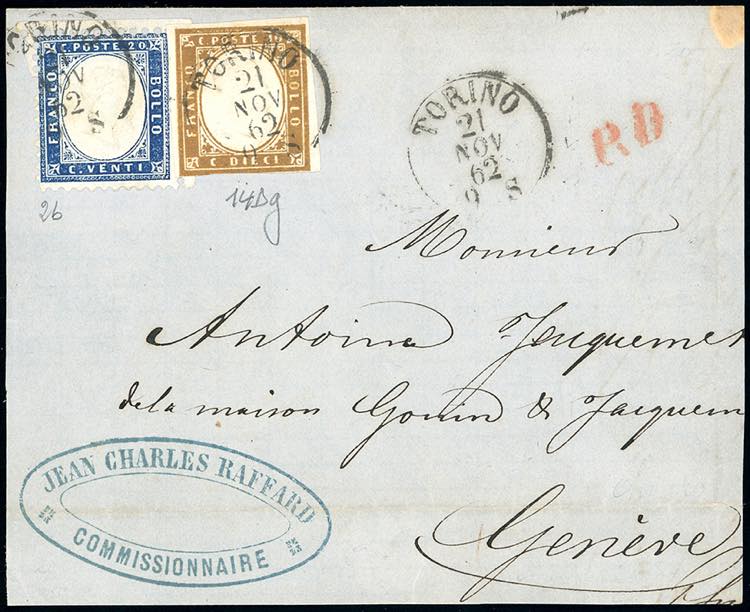 TORINO
C. POSTE 20
FRANCO
BOLLO
C. VENTI
C. POSTE
FRANCO
BOLLO
C. DIECI
TORINO
21
NOV
62
9 S
TORINO
21
NOV
62
9 S
P.D
26
14Dg
Monsieur
Antoine Jacquemet
de la maison Gonin & Jacquem
Genève
JEAN CHARLES RAFFARD
COMMISSIONNAIRE